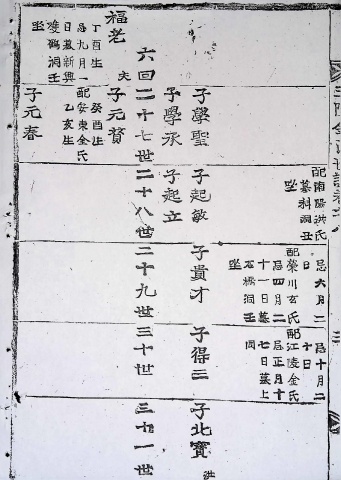 六回
福老
丁酉生
忌九月一
日墓新興
雙鶴洞壬
坐
子學聖
子學承
二十七世
子元贊
癸酉生
配安東金氏
乙亥生
子元春
配南陽洪氏
墓科洞丑
坐
子起敏
子起立
二十八世
忌六月二
日
配榮川玄氏
忌四月二
十一日墓
石橋洞壬
坐
子貴才
二十九世
忌十月二
十日
配江陵金氏
忌正月十
七日墓上
同
子得三
三十世
子北實
三十一世